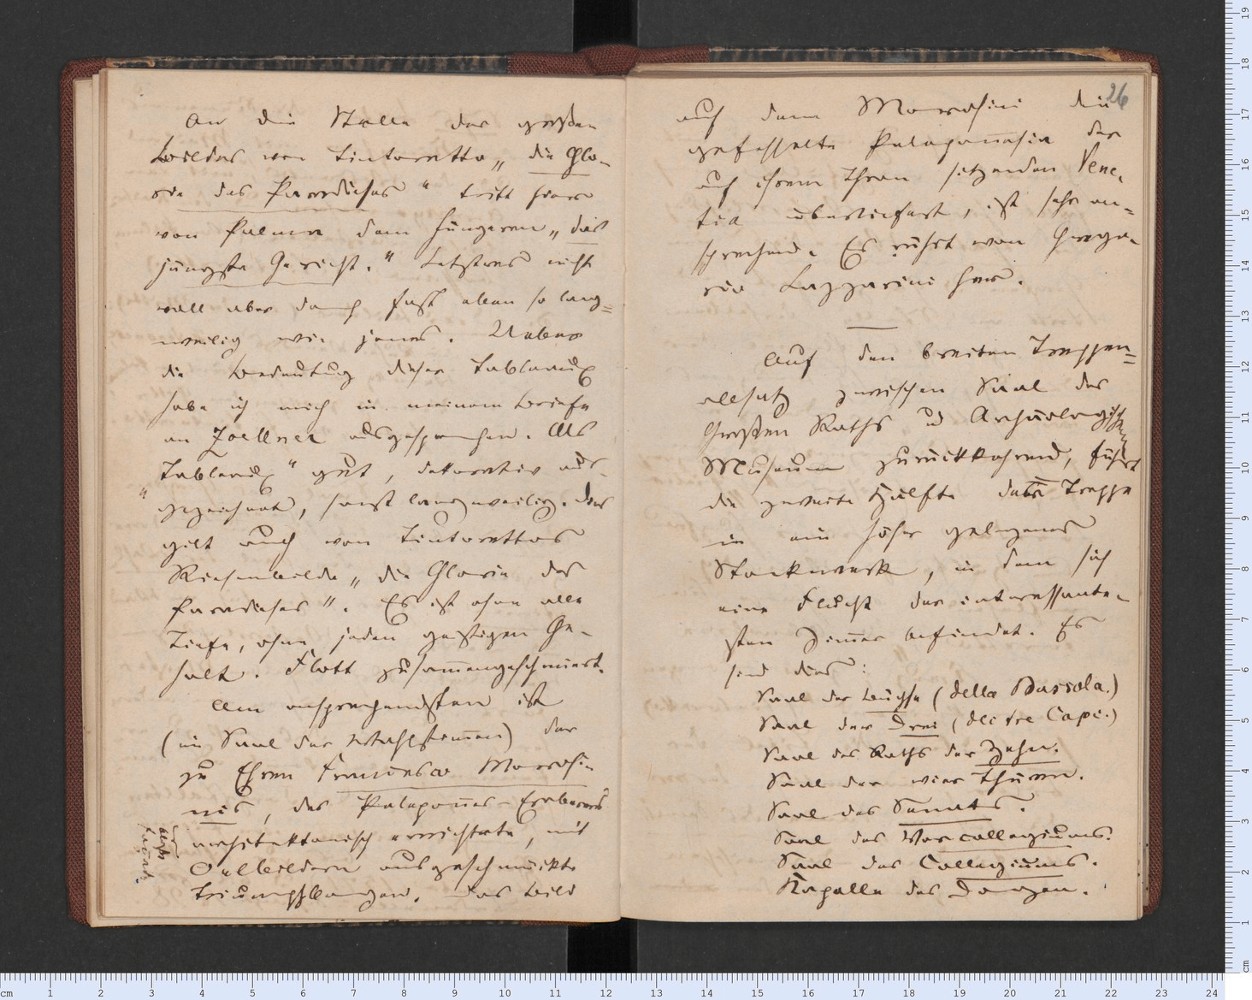 An die Stelle des großen
Bildes von Tintoretto „die Glo-
rie des Paradieses" tritt hier
von Palma dem Jüngeren „das
jüngste Gericht." Letztres nicht
voll aber doch fast eben so lang=
weilig wie jenes. Ueber
die Bedeutung dieser Tableaux
habe ich mich in meinem Briefe
an Zoellner ausgesprochen. Als
„Tableaux" gut, dekorativ aus-
gezeichnet, sonst langweilig. Das
gilt auch von Tintorettos
Riesenbilde „die Glorie des
Paradieses". Es ist ohne alle
Tiefe, ohne jeden geistigen Ge-
halt. Flott zusammengeschmiert.
Am ansprechendsten ist
(im Saal der Wahlstimmen) der
zu Ehren Francesco Morosi-
nis, des Peloponnes-Eroberers
architektonisch errichtete, mit
Oelbildern ausgeschmückte
Triumphbogen. Das Bild
26
auf dem Morosini die
gefesselte Peloponnesia der
auf ihrem Thron sitzenden Vene-
tia überliefert, ist sehr an=
sprechend. Es rührt von Grego-
rio Lazzarini her.
Auf den breiten Treppen=
absatz zwischen Saal des
Großen Raths u Archäologisches
Museum zurückkehrend, führt
die zweite Hälfte der Treppe
in ein höher gelegenes
Stockwerk, in dem sich
eine Flucht der interessante-
sten Zimmer befindet. Es
sind dies:
Saal der Büchse (della Bussola.)
Saal der Drei (dei tre Capi.)
Saal des Raths der Zehn.
Saal der vier Thüren.
Saal des Senats.
Saal des Vorcollegiums.
Saal des Collegiums.
Kapelle des Dogen.